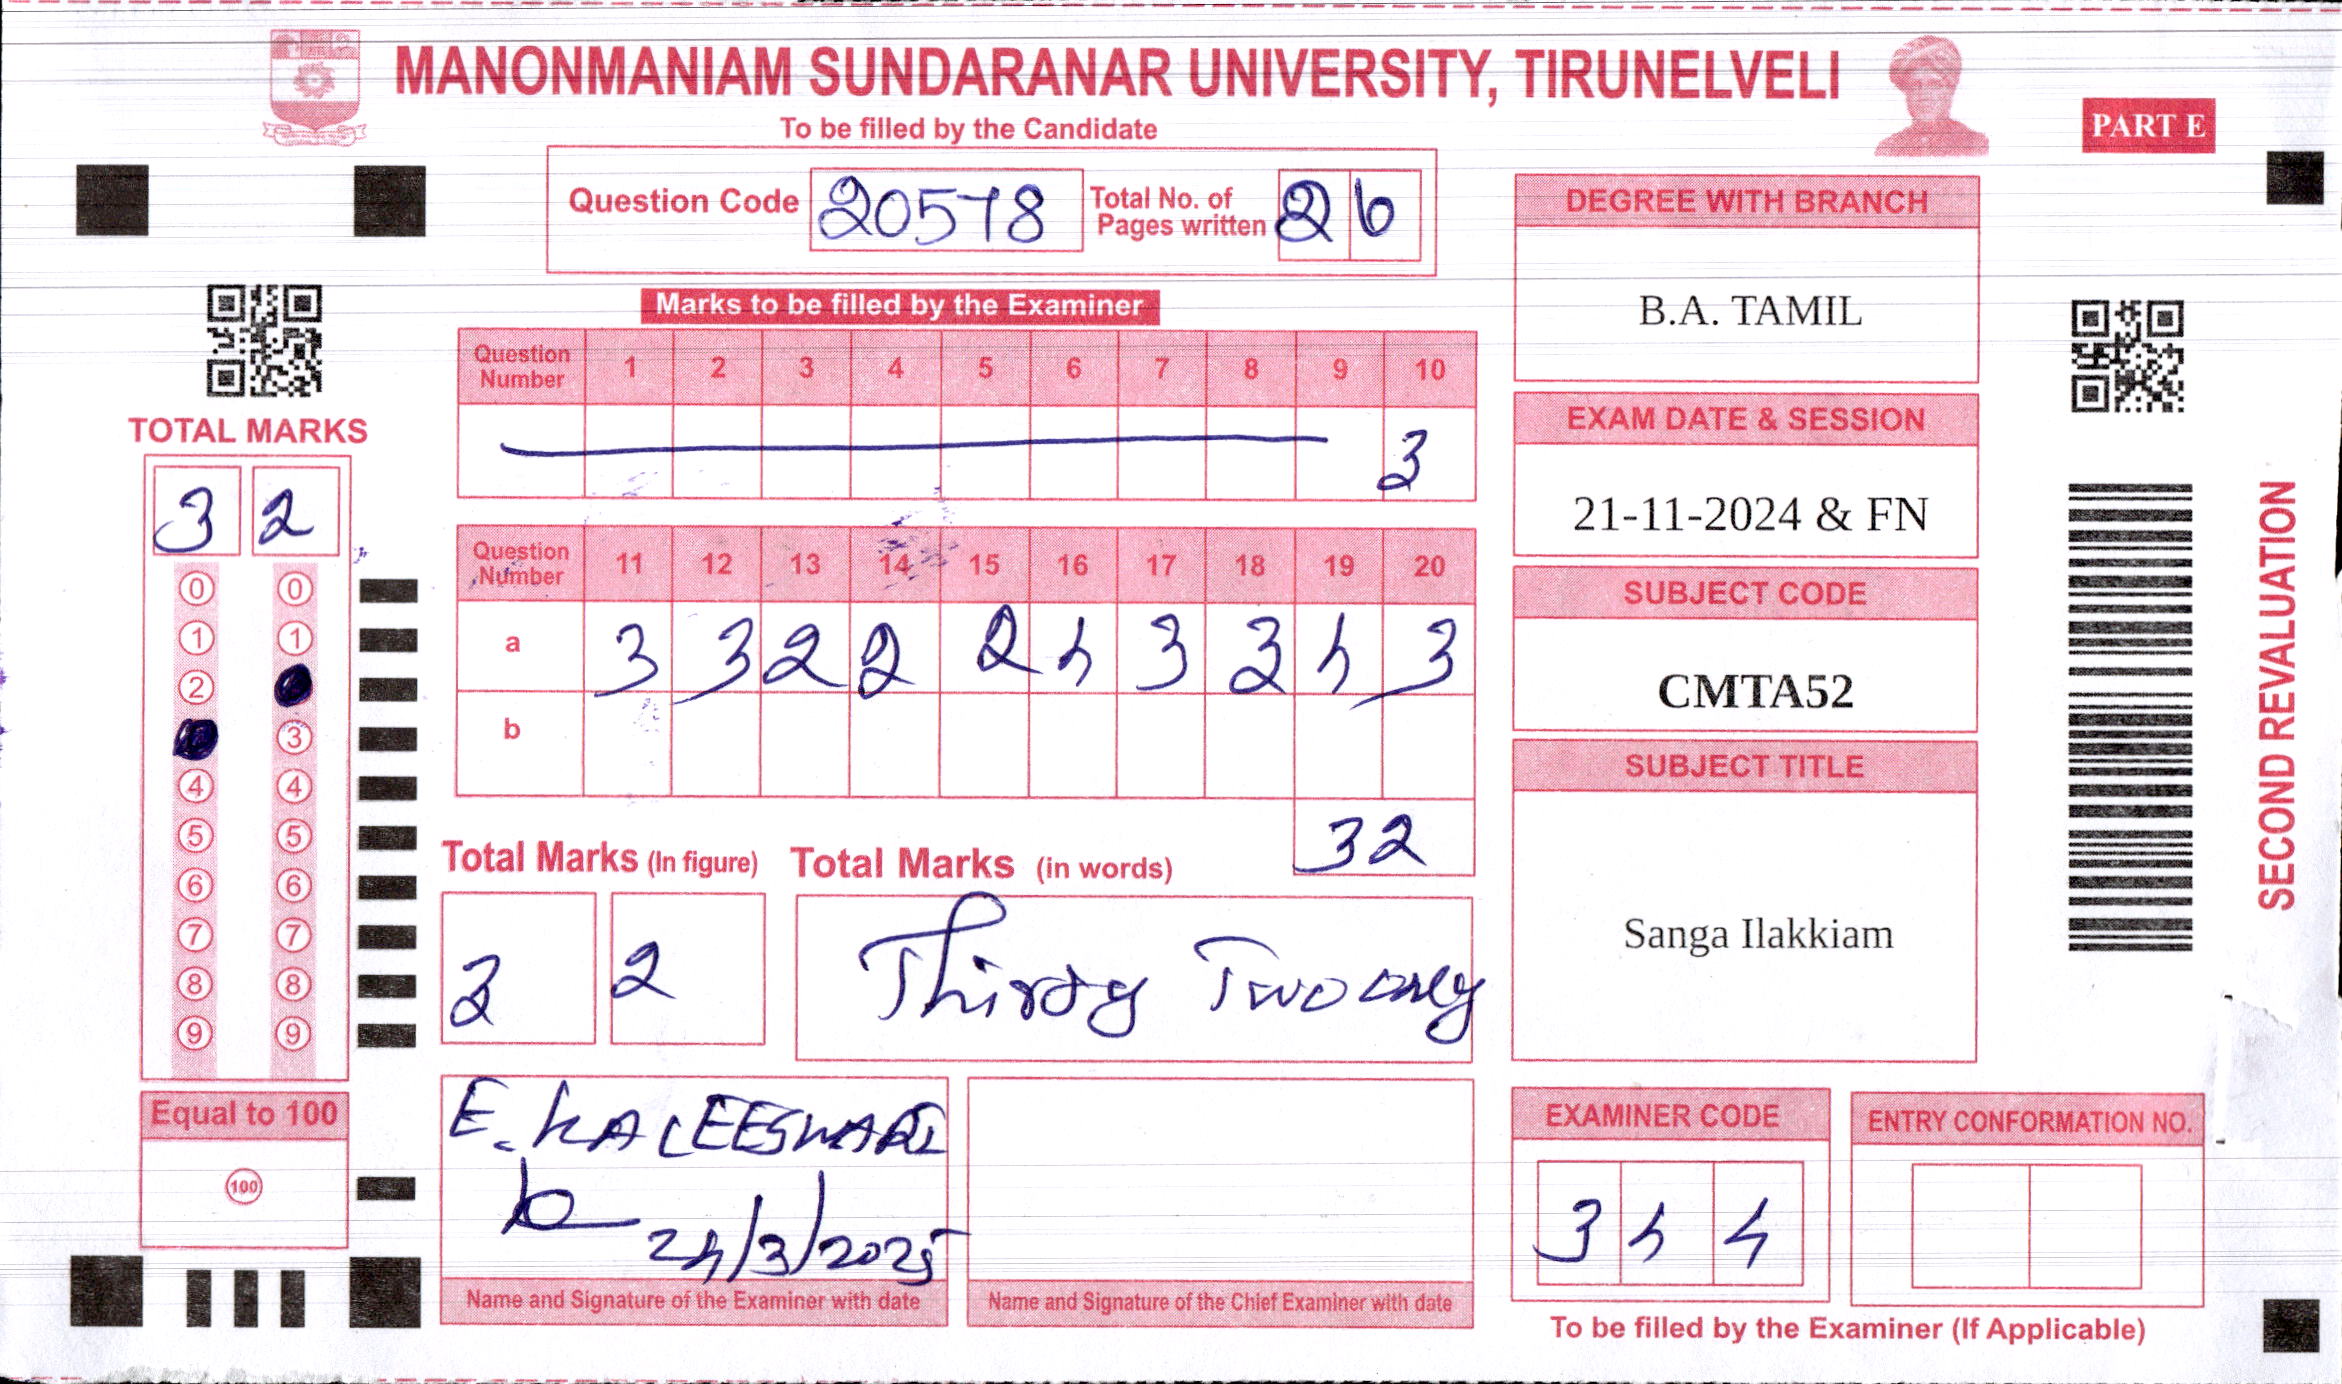 MANONMANIAM SUNDARANAR UNIVERSITY, TIRUNELVELI
To be filled by the Candidate
PART E
Question Code 20578 Total No. of Pages written 26
Marks to be filled by the Examiner
Question Number 1 2 3 4 5 6 7 8 9 10
3
Question Number 11 12 13 14 15 16 17 18 19 20
a 3 3 2 2 2 4 3 3 4 3
b
32
Total Marks (In figure) Total Marks (in words)
3 2 Thirty Two only
E. KALEESWARI
24/3/2025
Name and Signature of the Examiner with date
Name and Signature of the Chief Examiner with date
TOTAL MARKS
3 2
0 0
1 1
2
3
4 4
5 5
6 6
7 7
8 8
9 9
Equal to 100
100
DEGREE WITH BRANCH
B.A. TAMIL
EXAM DATE & SESSION
21-11-2024 & FN
SUBJECT CODE
CMTA52
SUBJECT TITLE
Sanga Ilakkiam
EXAMINER CODE
3 4 4
ENTRY CONFORMATION NO.
To be filled by the Examiner (If Applicable)
SECOND REVALUATION